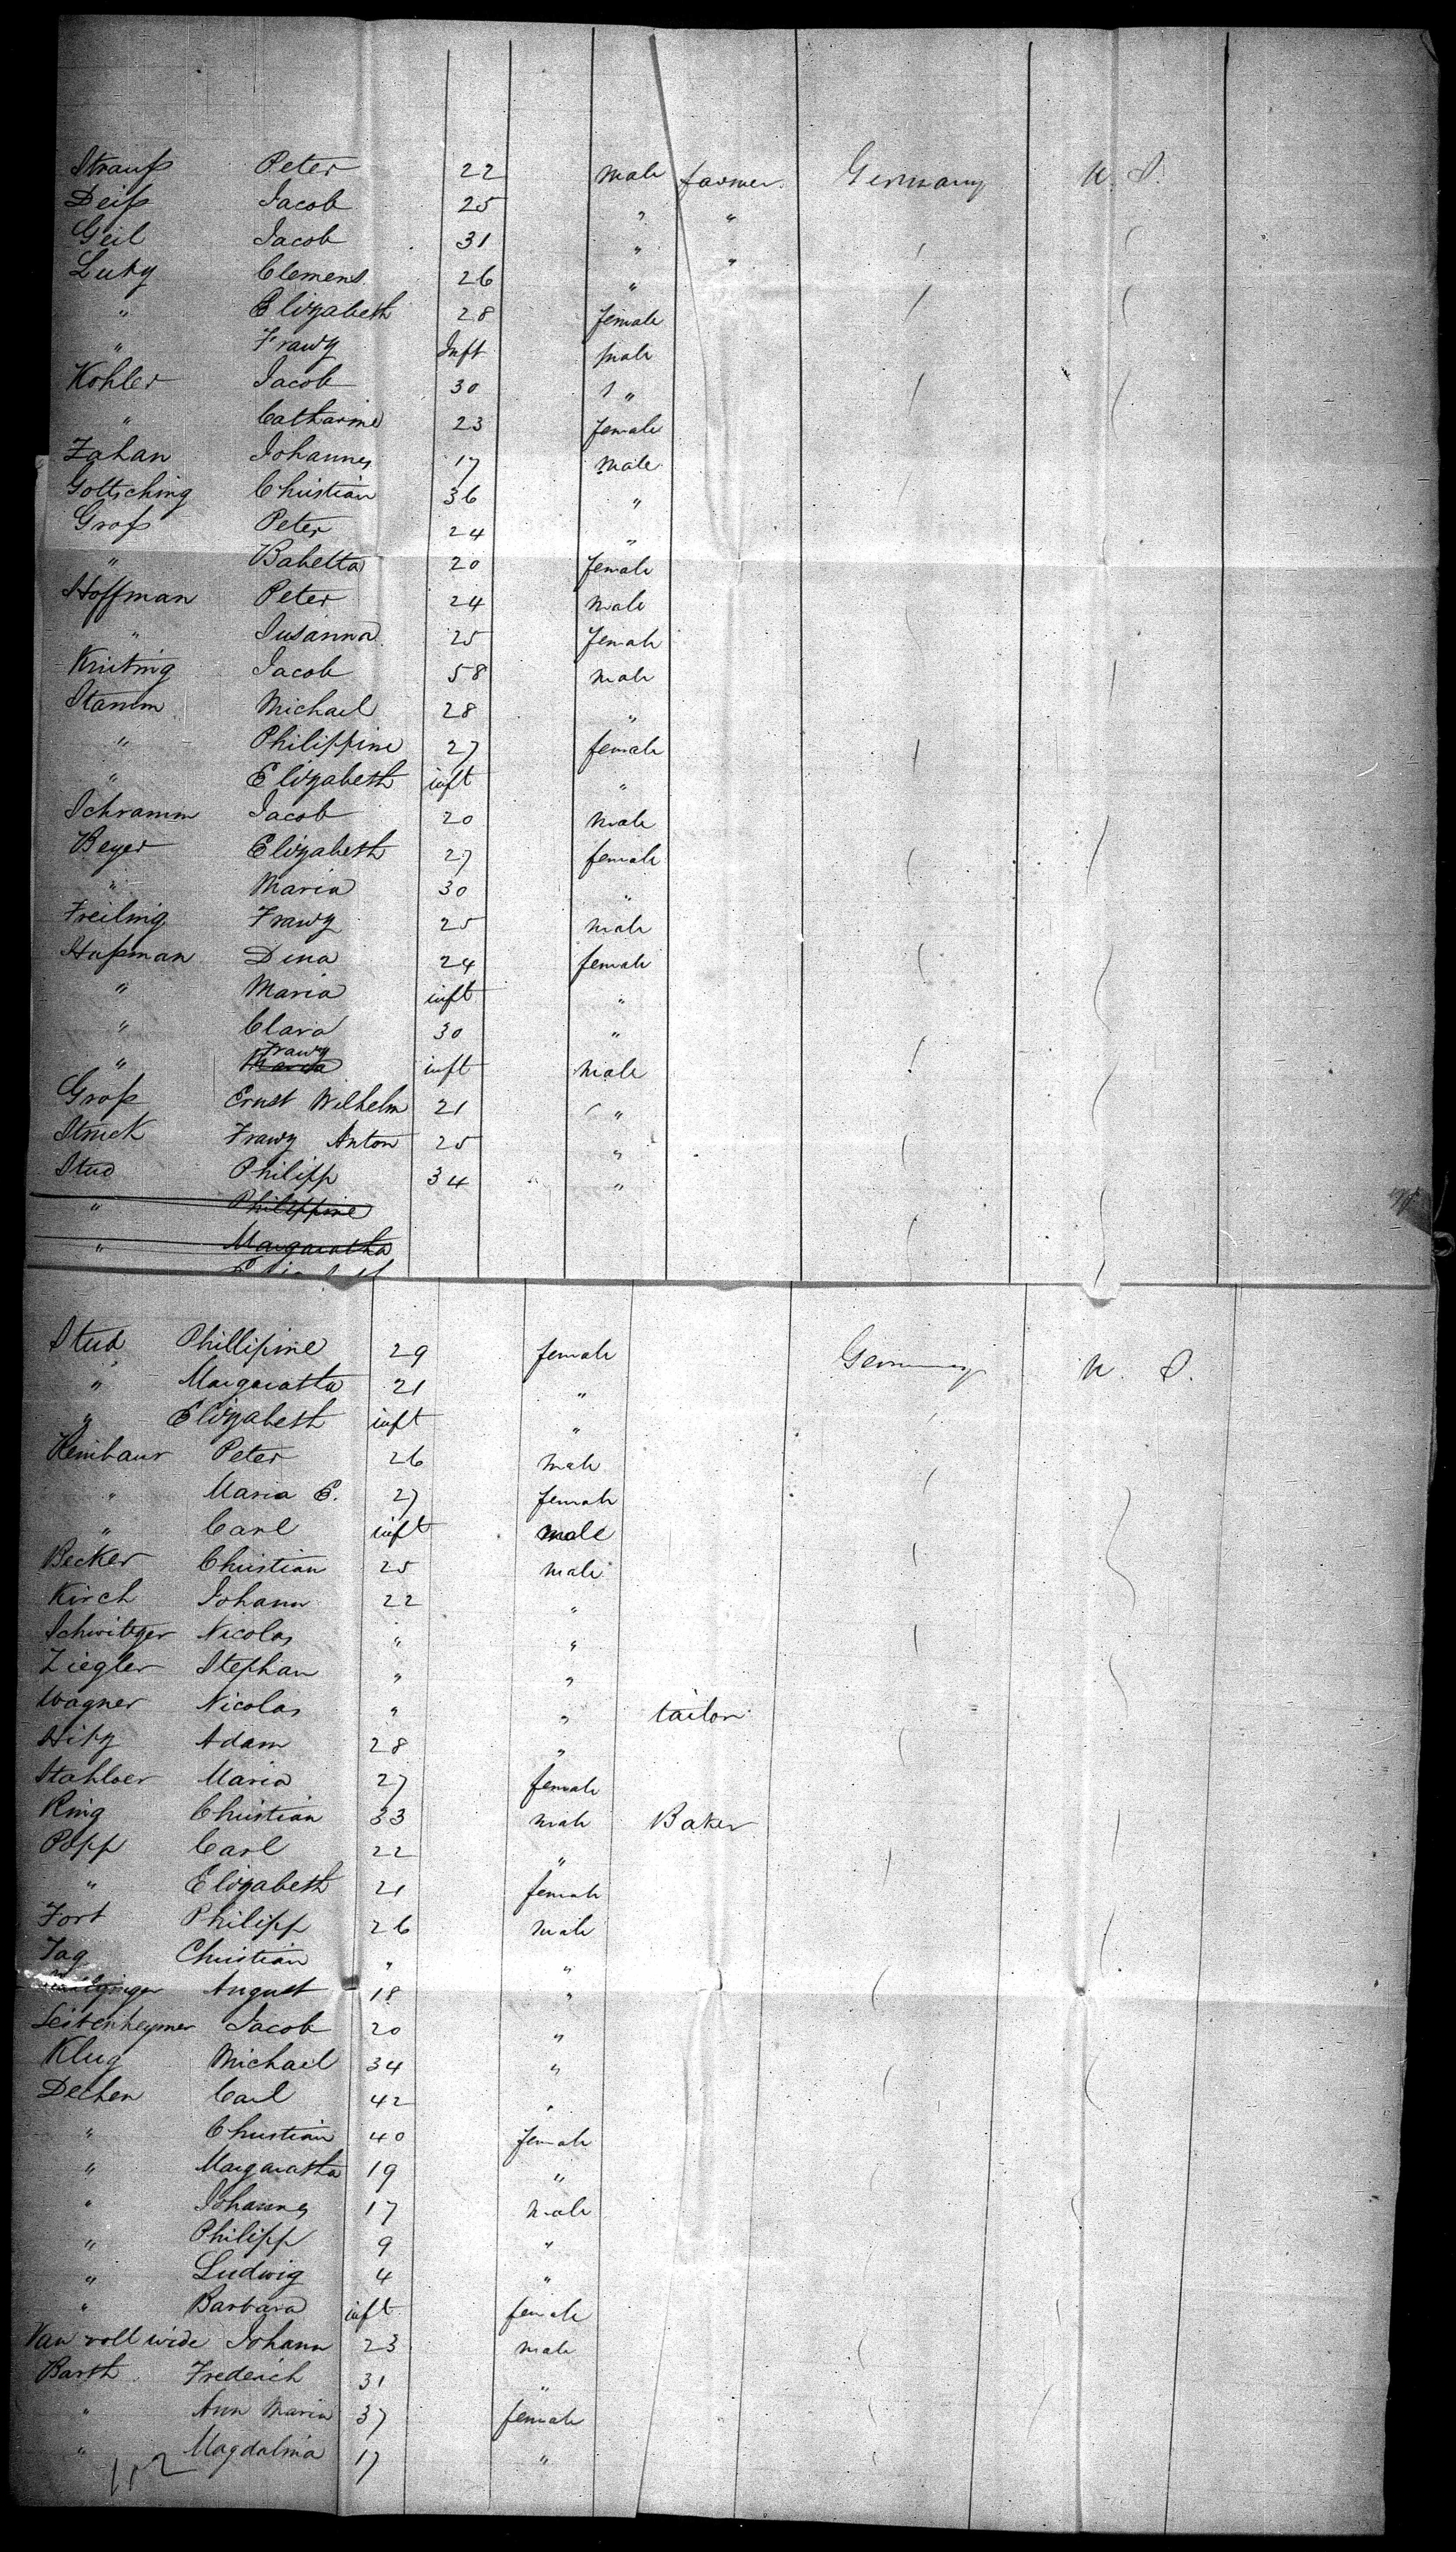 Strauß Peter 22 male farmer Germany U. S.
Deiß Jacob 25 " "
Geil Jacob 31 " "
Lutz Clemens 26 "
" Elizabeth 28 female
" Franz Inft male
Kohler Jacob 30 "
" Catharine 23 female
Zahan Johannes 17 male
Gottsching Christian 36 "
Groß Peter 24 "
" Babetta 20 female
Hoffman Peter 24 male
" Susanna 25 female
Jacob 58 male
Stamm Michael 28 "
" Philippine 27 female
" Elizabeth inft "
Schramm Jacob 20 male
Beyer Elizabeth 27 female
" Maria 30 "
Freiling Franz 25 male
Hußman Dina 24 female
" Maria inft "
" Clara 30 "
" Franz Maria inft male
Groß Ernst Wilhelm 21 "
Struck Franz Anton 25 "
Stud Philipp 34 "
" Philippine
" Margaratha
Stud Phillipine 29 female Germany U. S.
" Margaratha 21 "
" Elizabeth inft "
Peter 26 male
" Maria E. 27 female
" Carl inft male
Becker Christian 25 male
Kirch Johann 22 "
Schwitzer Nicolas " "
Ziegler Stephan " "
Wagner Nicolas " " tailor
Hitz Adam 28 "
Stahloer Maria 27 female
King Christian 33 male Baker
Popp Carl 22 "
" Elizabeth 21 female
Fort Philipp 26 male
Jag Christian " "
August 18 "
Leitenheymer Jacob 20 "
Klug Michael 34 "
Dechen Carl 42 "
" Christian 40 female
" Margaratha 19 "
" Johannes 17 male
" Philipp 9 "
" Ludwig 4 "
" Barbara inft female
Van voll wide Johann 23 male
Barth Frederich 31 "
" Ann Maria 37 female
" Magdalina 17 "